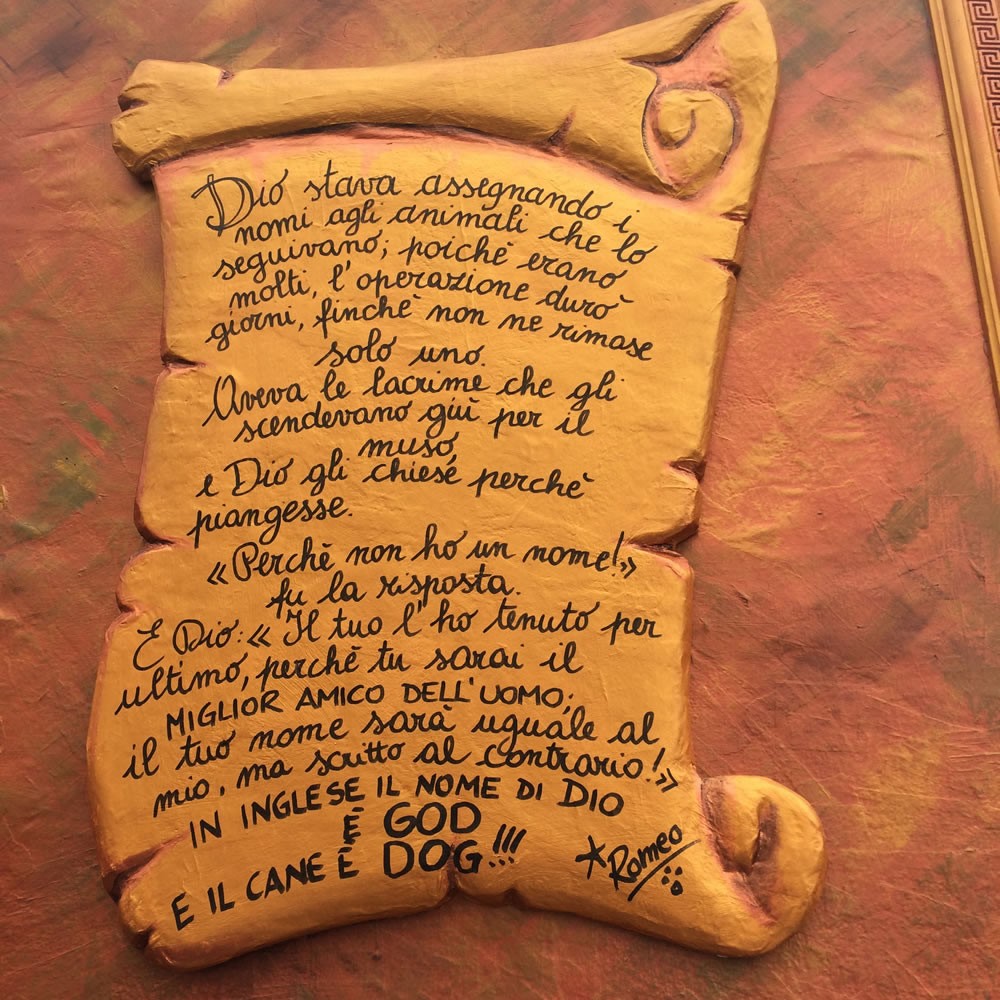 Dio stava assegnando i
nomi agli animali che lo
seguivano; poichè erano
molti, l'operazione durò
giorni, finchè non ne rimase
solo uno.
Aveva le lacrime che gli
scendevano giù per il
muso,
e Dio gli chiese perchè
piangesse.
«Perchè non ho un nome!»
fu la risposta.
E Dio: «Il tuo l'ho tenuto per
ultimo, perchè tu sarai il
MIGLIOR AMICO DELL'UOMO;
il tuo nome sarà uguale al
mio, ma scritto al contrario!»
IN INGLESE IL NOME DI DIO
É GOD
E IL CANE È DOG!!!
*Romeo